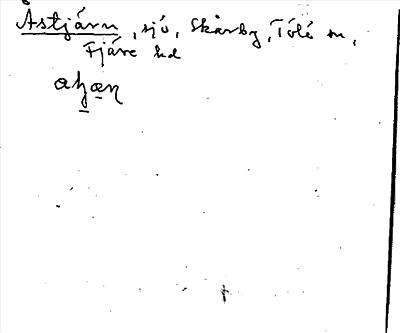 Åstjärn, sjö, Skårby, Tölö sn,
Fjäre hd